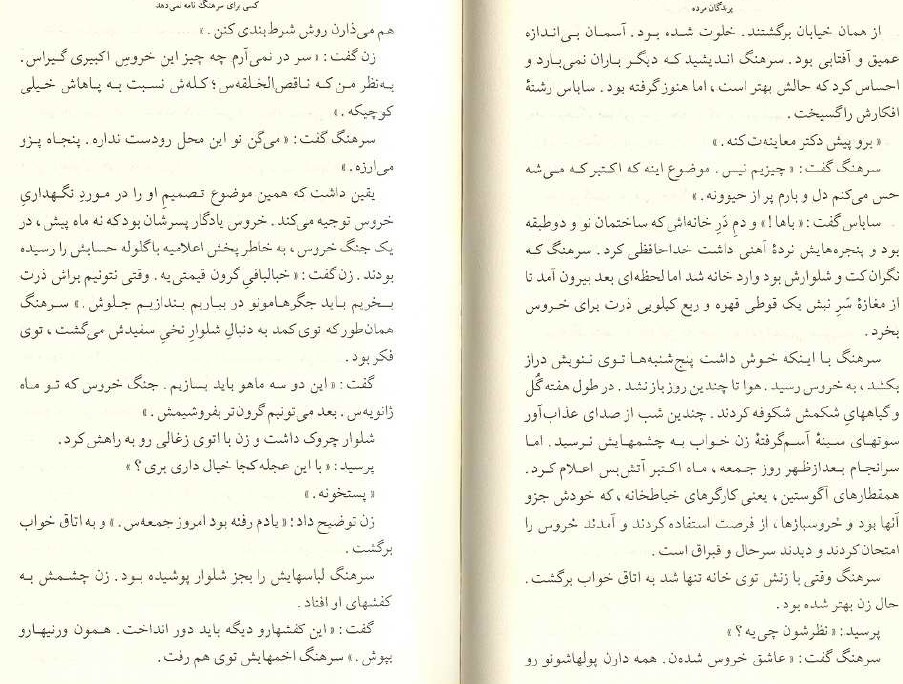 پرندگان مرده
از همان خیابان برگشتند. خلوت شده بود. آسمان بی‌اندازه
عمیق و آفتابی بود. سرهنگ اندیشید که دیگر باران نمی‌بارد و
احساس کرد که حالش بهتر است، اما هنوز گرفته بود. ساباس رشتهٔ
افکارش را گسیخت.
«برو پیش دکتر معاینه‌ت کنه.»
سرهنگ گفت: «چیزیم نیس. موضوع اینه که اکتبر که می‌شه
حس می‌کنم دل و بارم پر از حیوونه.»
ساباس گفت: «باها!» و دمِ دَرِ خانه‌اش که ساختمان نو و دوطبقه
بود و پنجره‌هایش نردهٔ آهنی داشت خداحافظی کرد. سرهنگ که
نگران کت و شلوارش بود وارد خانه شد اما لحظه‌ای بعد بیرون آمد تا
از مغازهٔ سَرِ نبش یک قوطی قهوه و ربع کیلویی ذرت برای خروس
بخرد.
سرهنگ با اینکه خوش داشت پنج‌شنبه‌ها توی ننویش دراز
بکشد، به خروس رسید. هوا تا چندین روز باز نشد. در طول هفته گُل
و گیاههای شکمش شکوفه کردند. چندین شب از صدای عذاب‌آور
سوتهای سینهٔ آسم‌گرفتهٔ زن خواب به چشمهایش نرسید. اما
سرانجام بعدازظهر روز جمعه، ماه اکتبر آتش‌بس اعلام کرد.
همقطارهای آگوستین، یعنی کارگرهای خیاطخانه، که خودش جزو
آنها بود و خروسبازها، از فرصت استفاده کردند و آمدند خروس را
امتحان کردند و دیدند سرحال و قبراق است.
سرهنگ وقتی با زنش توی خانه تنها شد به اتاق خواب برگشت.
حال زن بهتر شده بود.
پرسید: «نظرشون چی‌یه؟»
سرهنگ گفت: «عاشق خروس شده‌ن. همه دارن پولهاشونو رو
کسی برای سرهنگ نامه نمی‌دهد
هم می‌ذارن روش شرط‌بندی کنن.»
زن گفت: «سر در نمی‌آرم چه چیز این خروسِ اکبیری گیراس.
به‌نظر من که ناقص‌الخلقه‌س؛ کله‌ش نسبت به پاهاش خیلی
کوچیکه.»
سرهنگ گفت: «می‌گن تو این محل رودست نداره. پنجاه پزو
می‌ارزه.»
یقین داشت که همین موضوع تصمیمِ او را در موردِ نگهداریِ
خروس توجیه می‌کند. خروس یادگار پسرشان بود که نه ماه پیش، در
یک جنگ خروس، به خاطر پخش اعلامیه با گلوله حسابش را رسیده
بودند. زن گفت: «خیالبافیِ گرون قیمتی‌یه. وقتی نتونیم براش ذرت
بخریم باید جگرهامونو در بیاریم بندازیم جلوش.» سرهنگ
همان‌طور که توی کمد به دنبالِ شلوارِ نخیِ سفیدش می‌گشت، توی
فکر بود.
گفت: «این دو سه ماهو باید بسازیم. جنگ خروس که تو ماه
ژانویه‌س. بعد می‌تونیم گرون‌تر بفروشیمش.»
شلوار چروک داشت و زن با اتوی زغالی رو به راهش کرد.
پرسید: «با این عجله کجا خیال داری بری؟»
«پستخونه.»
زن توضیح داد: «یادم رفته بود امروز جمعه‌س.» و به اتاق خواب
برگشت.
سرهنگ لباسهایش را بجز شلوار پوشیده بود. زن چشمش به
کفشهای او افتاد.
گفت: «این کفشهارو دیگه باید دور انداخت. همون ورنیهارو
بپوش.» سرهنگ اخمهایش توی هم رفت.